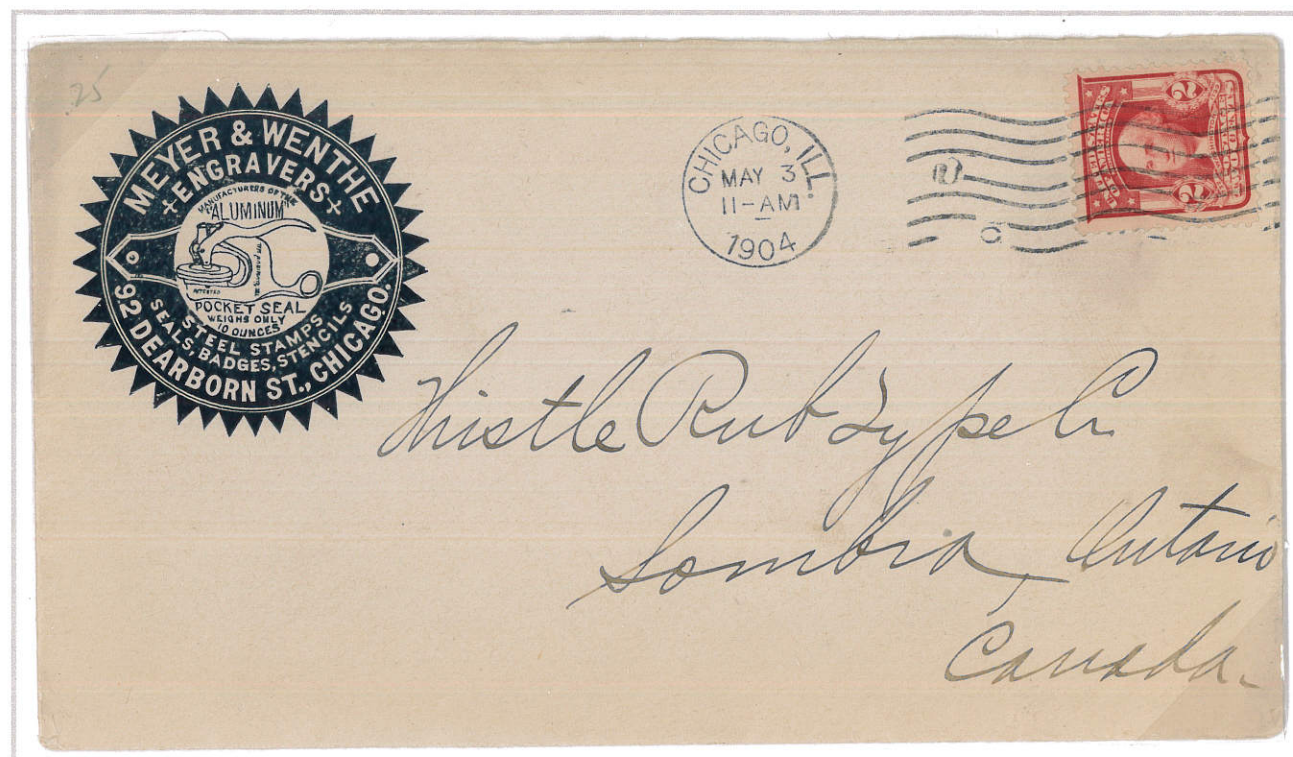 25
MEYER & WENTHE
ENGRAVERS
MANUFACTURERS OF THE
"ALUMINUM"
POCKET SEAL
WEIGHS ONLY
10 OUNCES
STEEL STAMPS
SEALS, BADGES, STENCILS
92 DEARBORN ST., CHICAGO.
CHICAGO, ILL.
MAY 3
11-AM
1904
2
2
OF AMERICA
Thistle Rub Type Co
Sombra, Ontario
Canada.